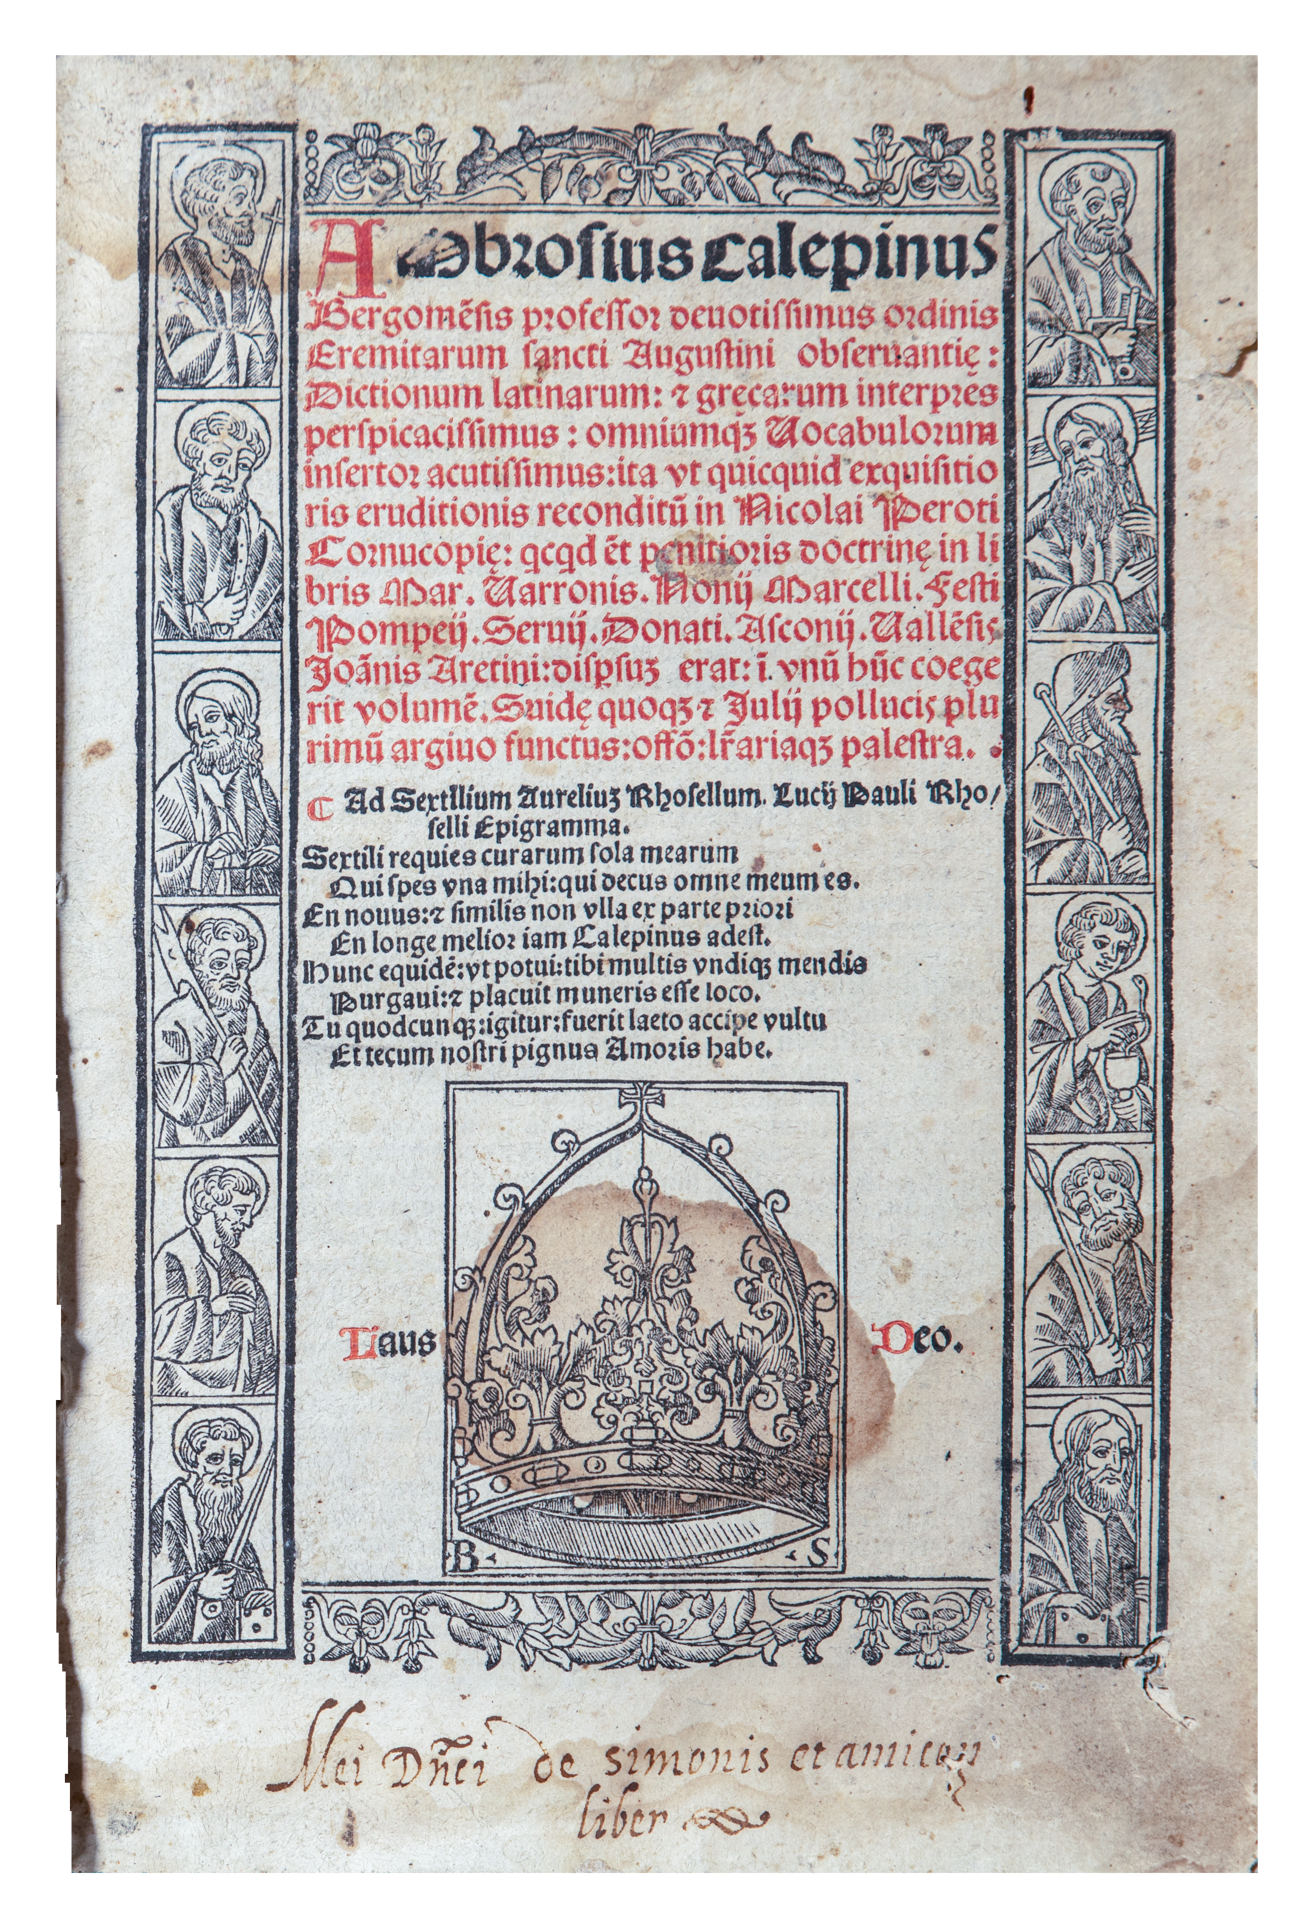 Ambrosius Calepinus
Bergomēsis professor deuotissimus ordinis
Eremitarum sancti Augustini obseruantię :
Dictionum latinarum: ⁊ gręcarum interpres
perspicacissimus : omniumqꝫ Uocabulorum
insertor acutissimus:ita vt quicquid exquisitio
ris eruditionis reconditū in Nicolai Peroti
Cornucopię: qcqd ēt penitioris doctrinę in li
bris Mar. Uarronis. Nonij Marcelli. Festi
Pompeij. Seruij. Donati. Asconij. Uallēsis
Joānis Aretini:dispsuꝫ erat: ī vnū hūc coege
rit volumē. Suidę quoqꝫ ⁊ Julij pollucis plu
rimū argiuo functus:offō:lr̄ariaqꝫ palestra.
Ad Sextilium Aureliuꝫ Rhosellum. Lucij Pauli Rho/
selli Epigramma.
Sextili requies curarum sola mearum
Qui spes vna mihi:qui decus omne meum es.
En nouus:⁊ similis non vlla ex parte priori
En longe melior iam Calepinus adest.
Hunc equidē:vt potui:tibi multis vndiqꝫ mendis
Purgaui:⁊ placuit muneris esse loco.
Tu quodcunqꝫ:igitur:fuerit laeto accipe vultu
Et tecum nostri pignus Amoris habe.
Laus Deo.
B. .S
Mei Dn̄ci de simonis et amicoꝝ
liber